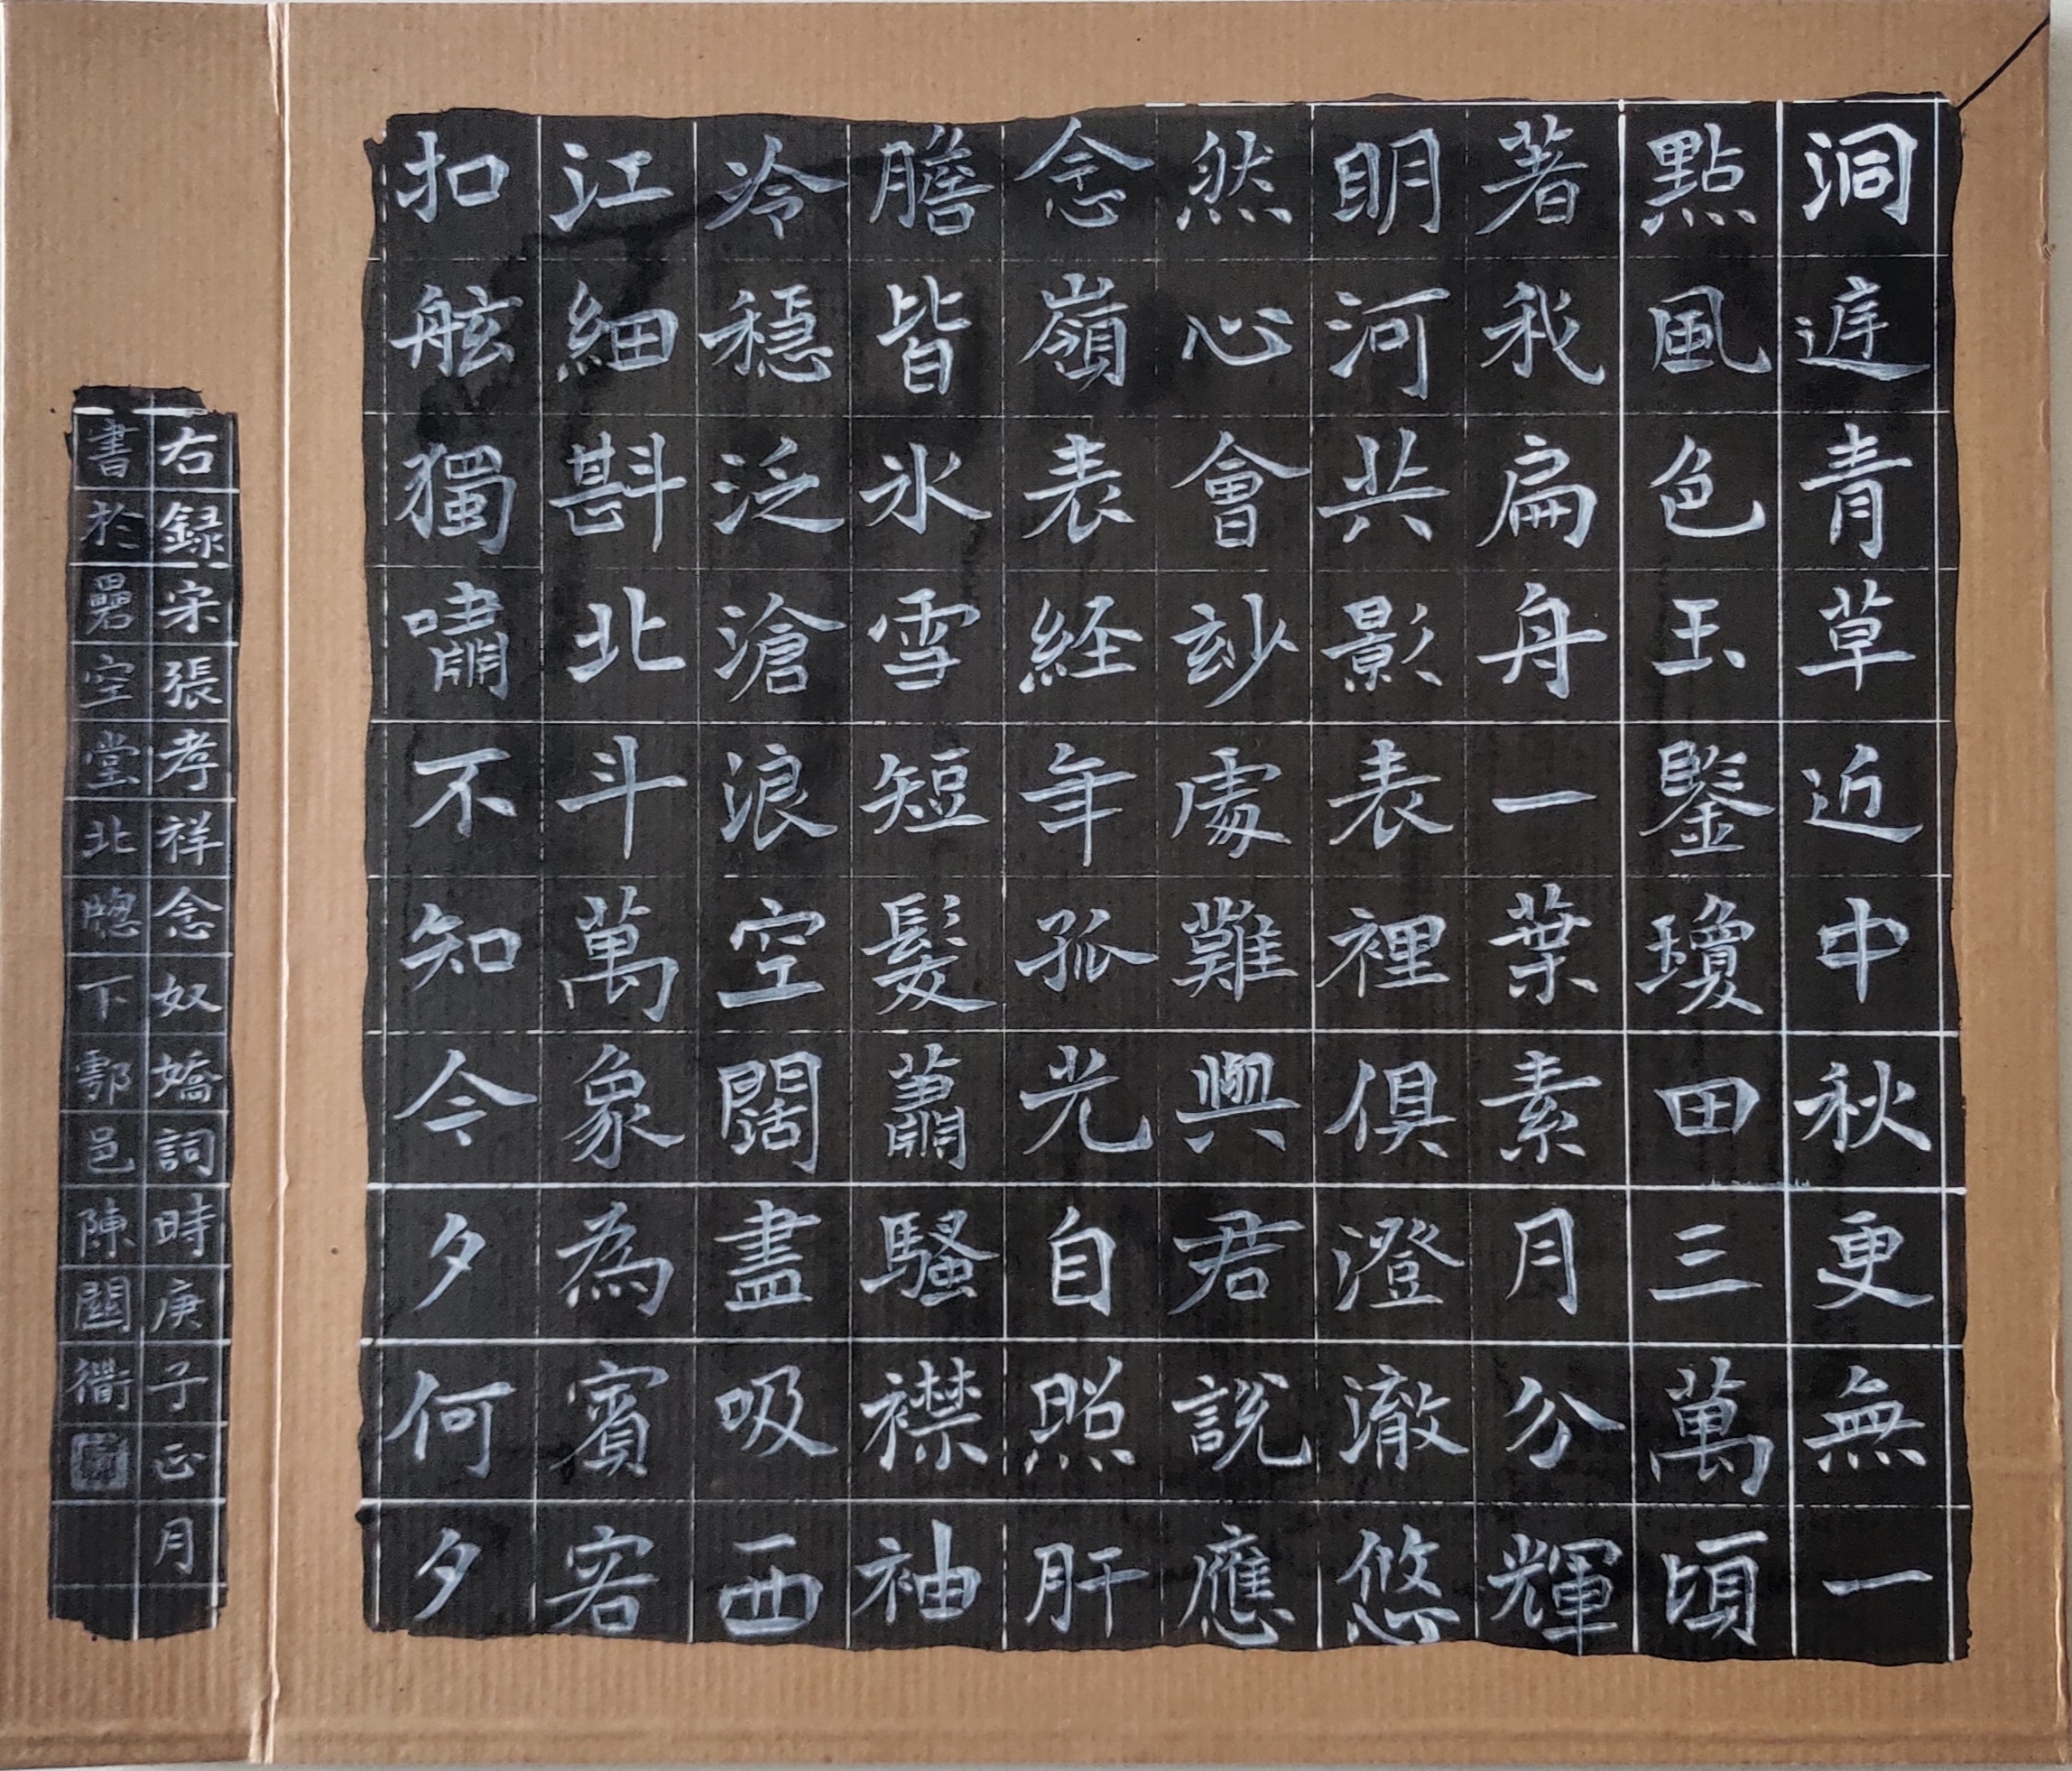 洞庭青草近中秋更無一
點風色玉鑒瓊田三萬頃
著我扁舟一葉素月分輝
明河共影表裡俱澄澈悠
然心會玅處難與君說應
念嶺表経年孤光自照肝
膽皆氷雪短髮蕭騷襟袖
冷穩泛滄浪空闊盡吸西
江細斟北斗萬象為賓客
扣舷獨嘯不知今夕何夕
右録宋張孝祥念奴嬌詞時庚子正月
書於礨空堂北牕下鄠邑陳衢